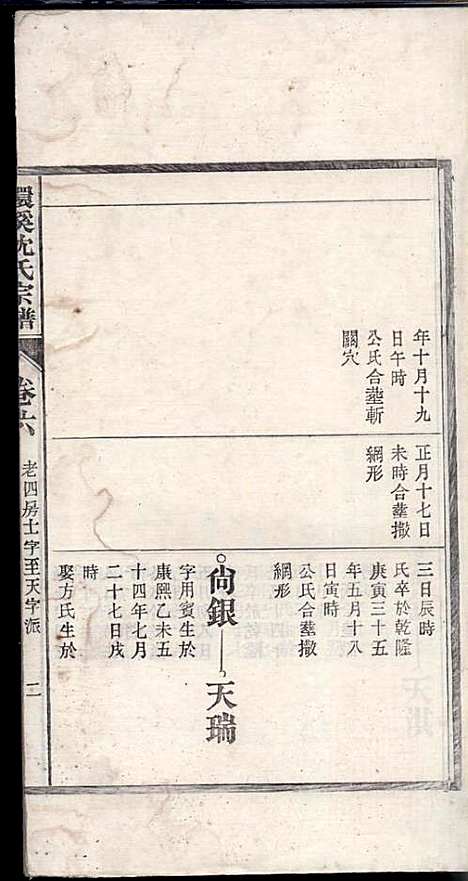 年十月十九
日午時
公氏合塟斬
關穴
正月十七日
未時合塟撒
網形
三日辰時
氏卒於乾隆
庚寅三十五
年五月十八
日寅時
公氏合塟撒
網形
尙銀—天瑞
字用賓生於
康熙乙未五
十四年七月
二十七日戌
時
娶方氏生於
環溪沈氏宗譜
卷六
老四房士字至天字派
二